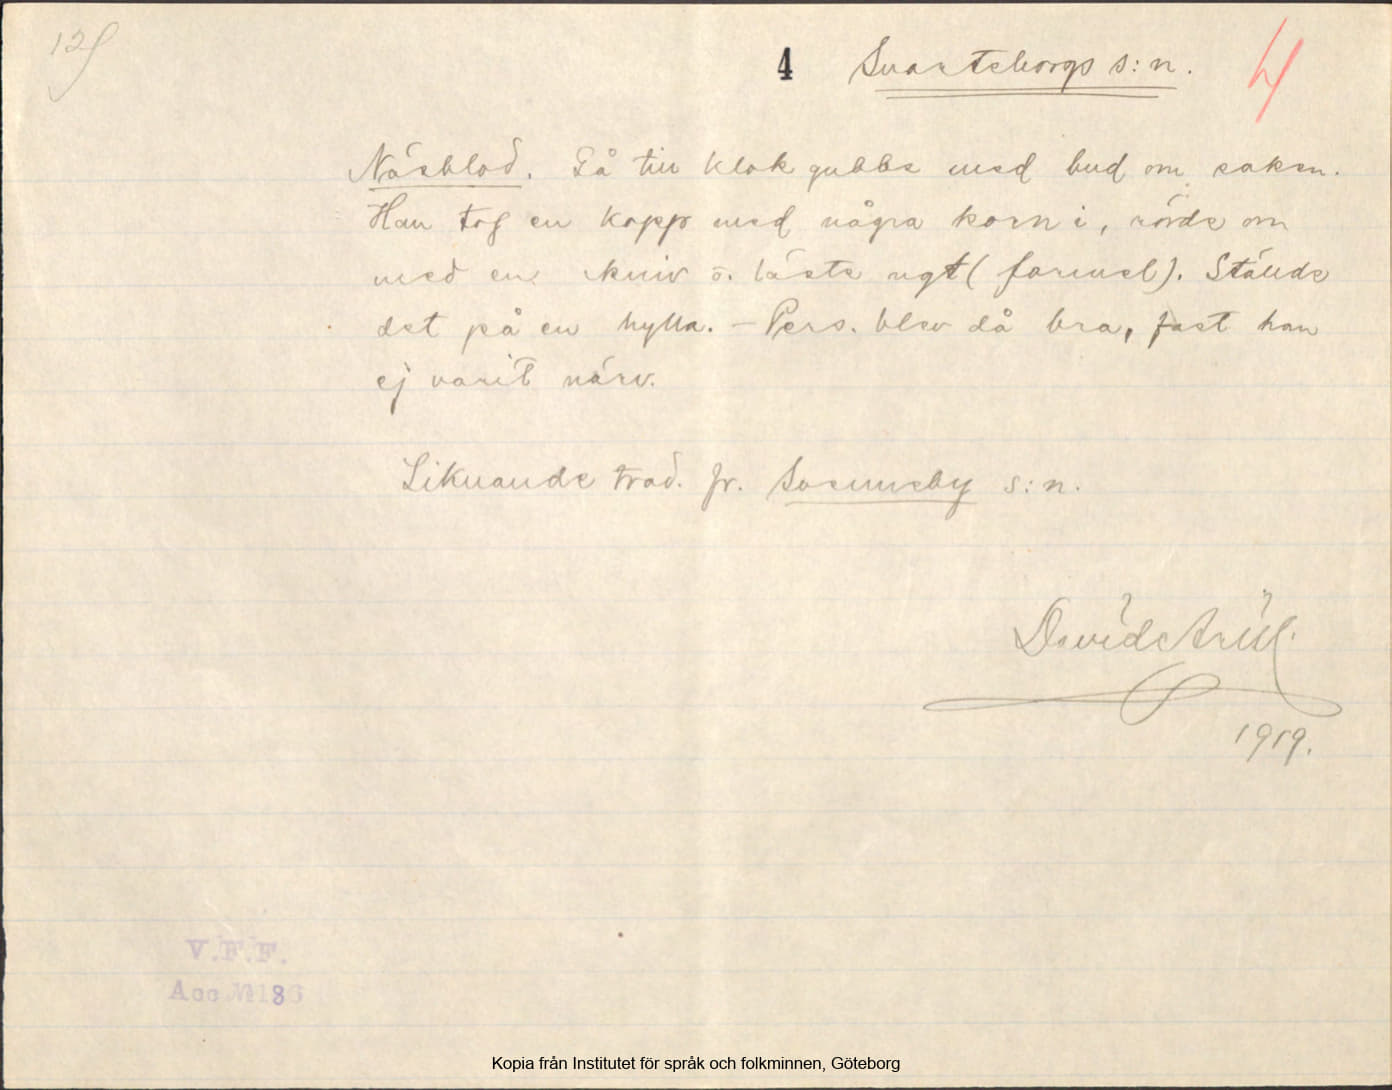 4 Svarteborgs s:n. 4
Näsblod. Gå till klok gubbe med bud om saken.
Han tog en kopp med några korn i, rörde om
med en kniv o. läste ngt (formel). Ställde
det på en hylla. – Pers. blev då bra, fast han
ej varit närv.
Liknande trad. fr. s:n.
David Arill.
1919.
V.F.F.
Acc № 186
Kopia från Institutet för språk och folkminnen, Göteborg